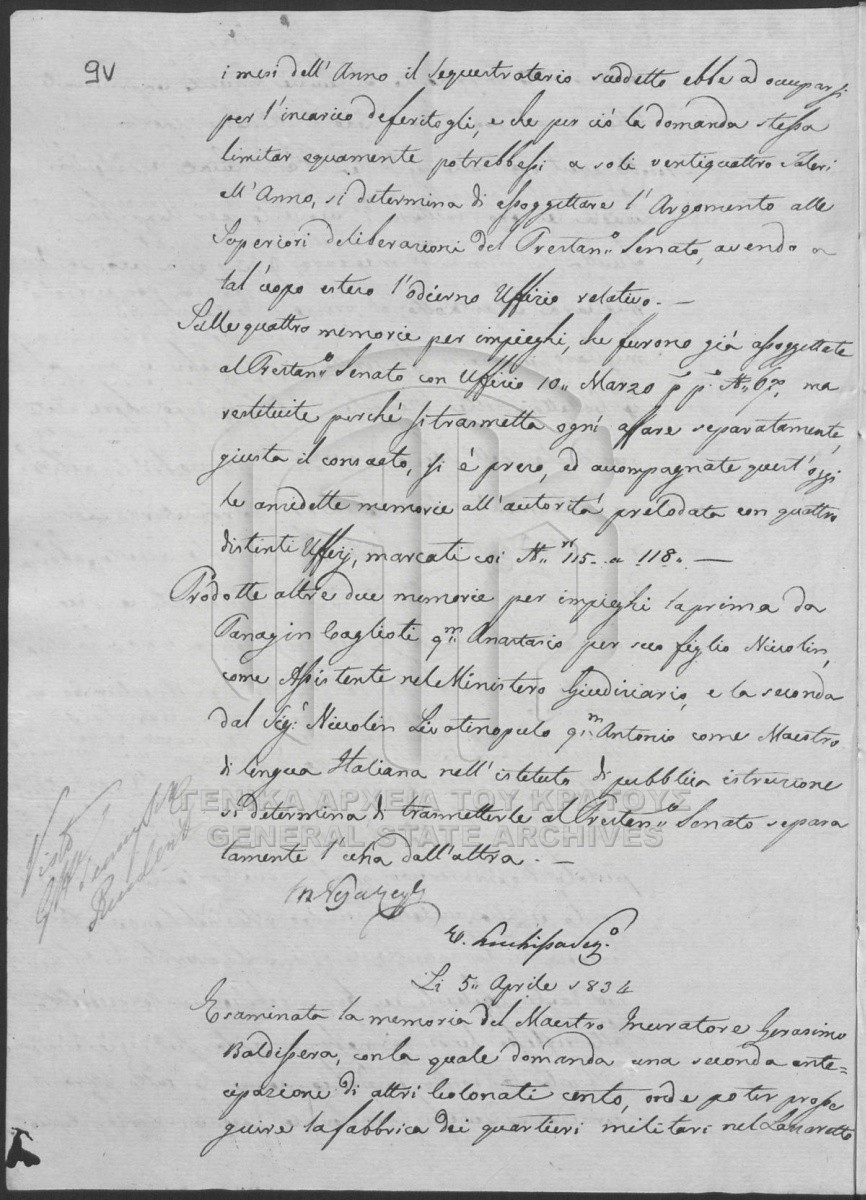 9v
i mesi dell' Anno il sequestratario suddetto ebbe ad occuparsi
per l'incarico deferitogli, e che per ciò la domanda stessa
limitar equamente potrebbesi a soli ventiquattro Talleri
all' Anno, si determina di assoggettare l' Argomento alle
Superiori deliberazioni del Prestan.o Senato, avendo a
tal' uopo esteso l'odierno Uffizio relativo. —
Sulle quattro memorie per impieghi, che furono già assoggettate
al Prestan.o Senato con Ufficio 10,, Marzo p.o p.o N.,, ma
restituite perchè si trasmetta ogni affare separatamente,
giusta il consueto, si è preso, ed accompagnate quest' oggi
le anzidette memorie all' autorità prelodata con quattro
distinti Ufficj, marcati coi N.ri 115. a 118. —
Prodotte altre due memorie per impieghi la prima da
Panagin Caglioti q.m Anastasio per suo figlio Niccolin,
come Assistente nel Ministero Giudiziario, e la seconda
dal Sig.r Niccolin Livatinopulo q.m Antonio come Maestro
di lingua Italiana nell' istituto di pubblica istruzione
si determina di trasmetterle al Prestan.o Senato separa
tamente l'una dall' altra. —
Visto
Presidente
Li 5,, Aprile 1834
Esaminata la memoria del Maestro Muratore Gerasimo
Baldissera, con la quale domanda una seconda ante=
cipazione di altri Colonati cento, onde poter prose
guire la fabbrica dei quartieri militari nel Lazzaretto
ΓΕΝΙΚΑ ΑΡΧΕΙΑ ΤΟΥ ΚΡΑΤΟΥΣ
GENERAL STATE ARCHIVES